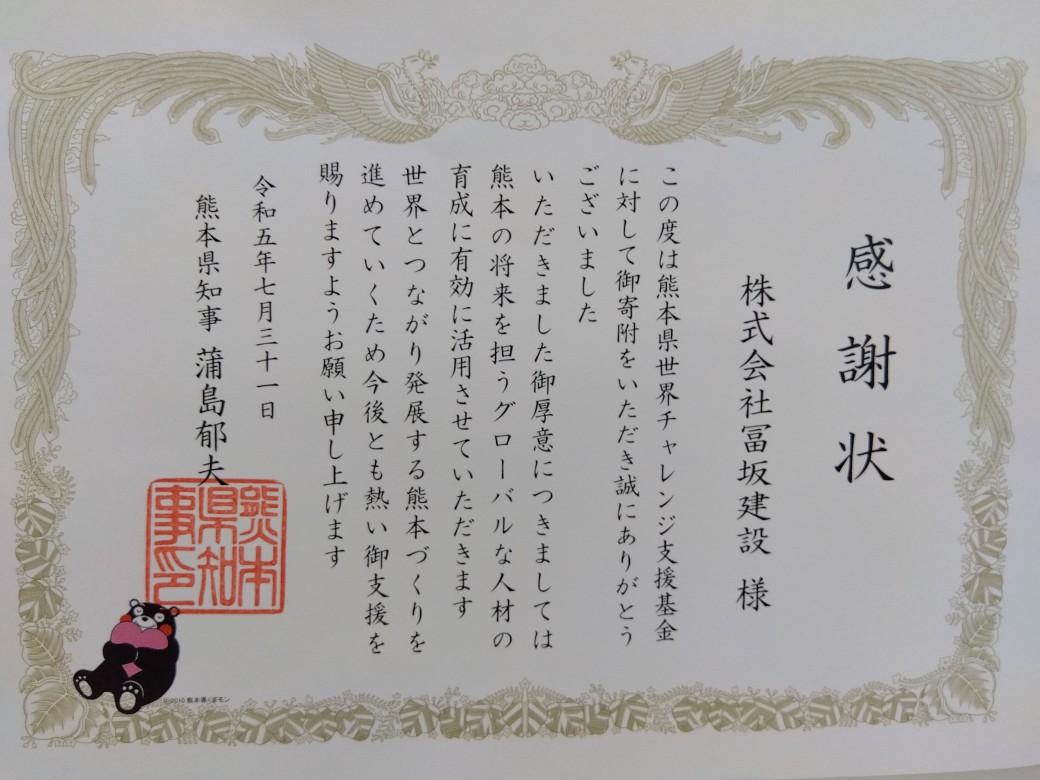 感謝状
株式会社冨坂建設 様
この度は熊本県世界チャレンジ支援基金
に対して御寄附をいただき誠にありがとう
ございました
いただきました御厚意につきましては
熊本の将来を担うグローバルな人材の
育成に有効に活用させていただきます
世界とつながり発展する熊本づくりを
進めていくため今後とも熱い御支援を
賜りますようお願い申し上げます
令和五年七月三十一日
熊本県知事 蒲島郁夫
熊本県知事印
©2010 熊本県くまモン